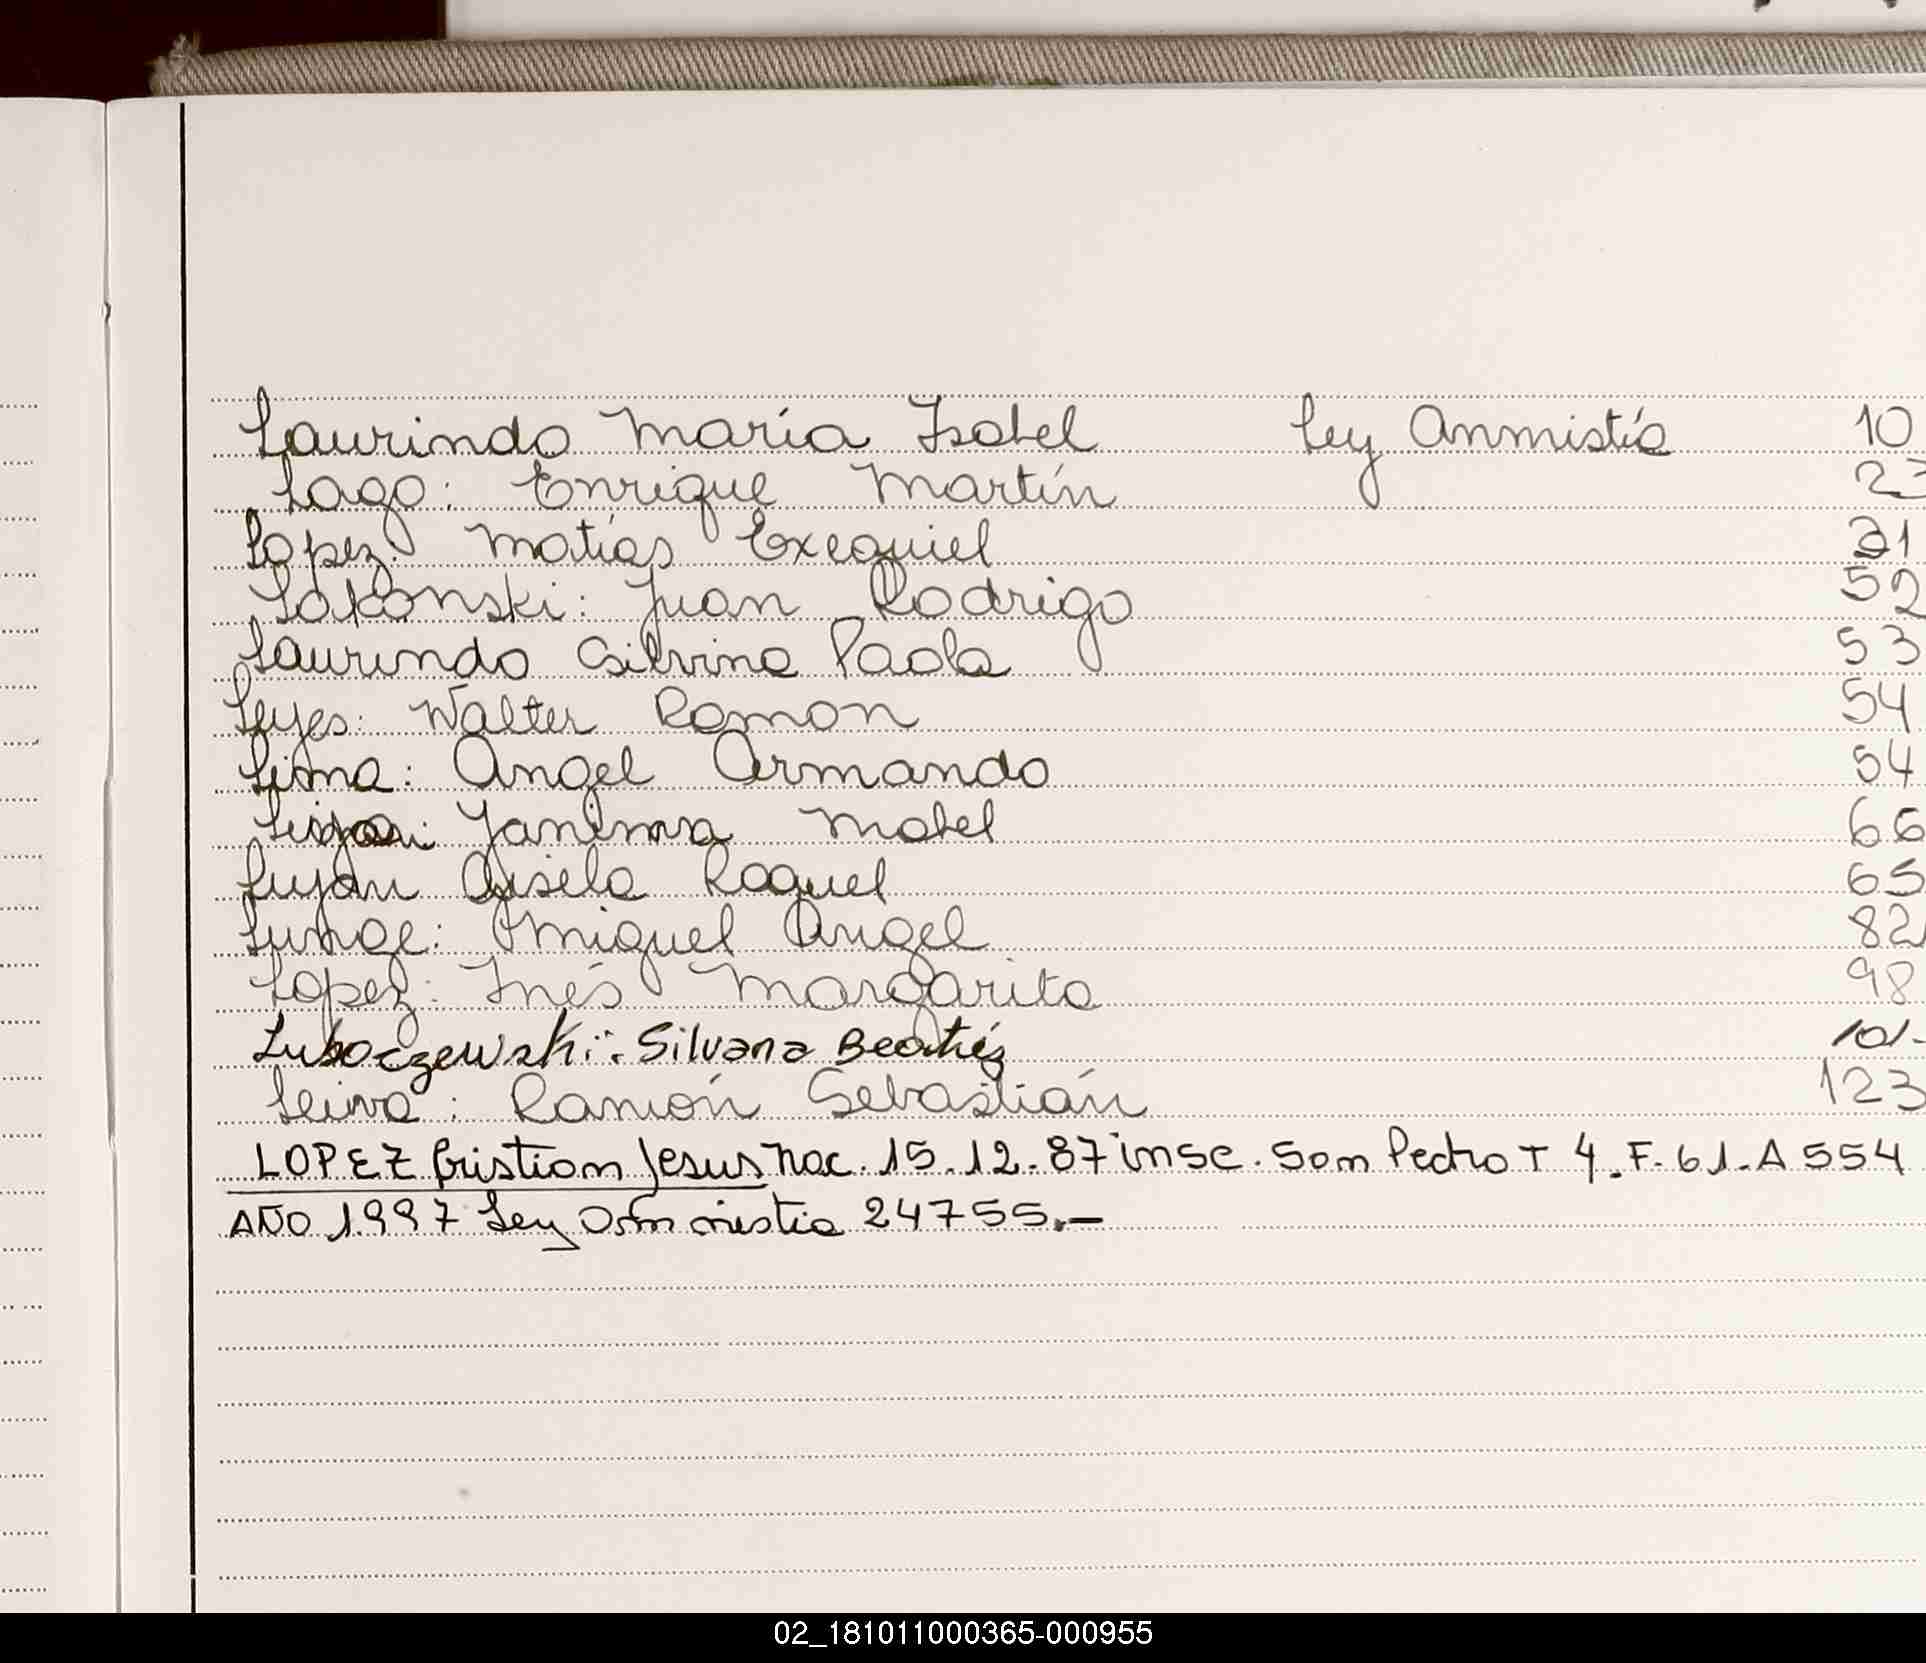 Laurindo María Isabel Ley Anmistía 10
Lago: Enrique Martín 23
Lopez: Matías Exequiel 31
Lakonski: Juan Rodrigo 52
Laurindo Silvina Paola 53
Leyes: Walter Ramon 54
Lima: Angel Armando 54
Yanina Mabel 66
Luján Gisela Raquel 65
Miguel Angel 82
Lopez: Inés Margarita 98
Luboczewski: Silvana Beatriz 101-
Leiva: Ramón Sebastián 123
LOPEZ Cristian Jesus Nac. 15.12.87 insc. San Pedro T 4. F. 61. A 554
AÑO 1.997 Ley 24755.-
02_181011000365-000955